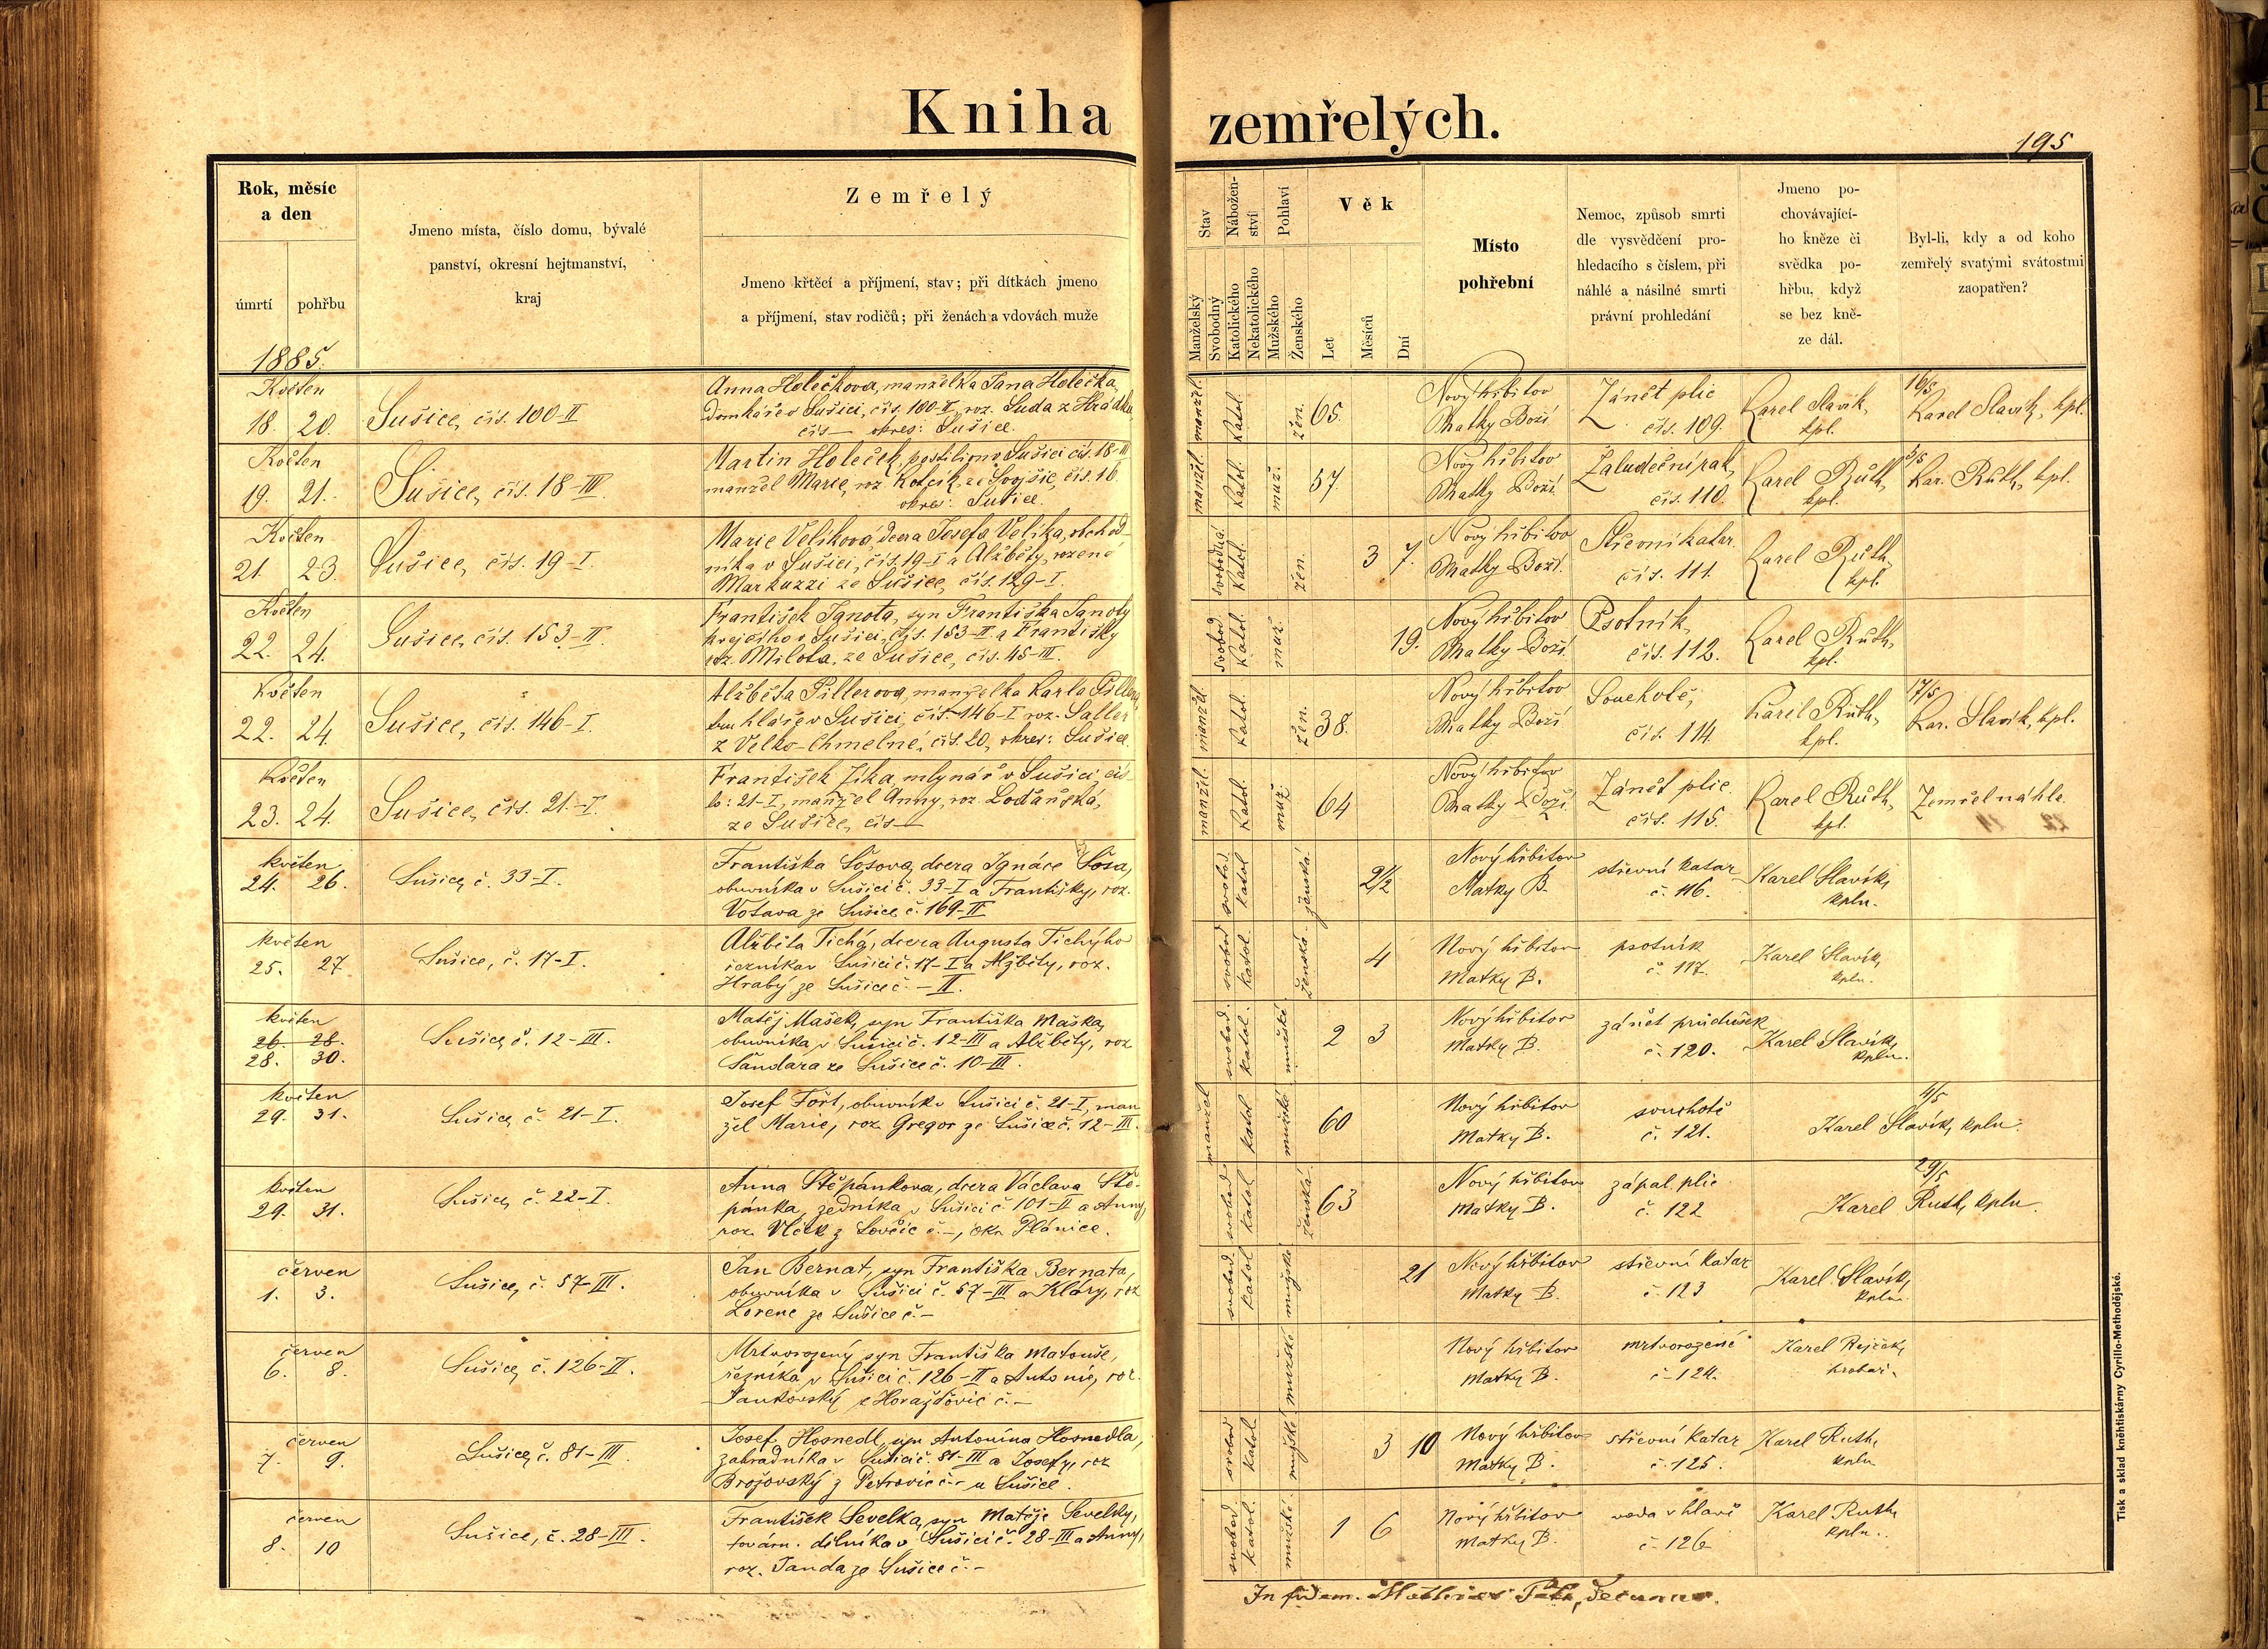 Kniha zemřelých.
195
Rok, měsíc
a den
úmrtí
pohřbu
1885.
Jmeno místa, číslo domu, bývalé
panství, okresní hejtmanství,
kraj
Zemřelý
Jmeno křtěcí a příjmení, stav; při dítkách jmeno
a příjmení, stav rodičů; při ženách a vdovách muže
Stav
Manželský
Svobodný
Nábožen-
ství
Katolického
Nekatolického
Pohlaví
Mužského
Ženského
Věk
Let
Měsíců
Dní
Místo
pohřební
Nemoc, způsob smrti
dle vysvědčení pro-
hledacího s číslem, při
náhlé a násilné smrti
právní prohledání
Jmeno po-
chovávající-
ho kněze či
svědka po-
hřbu, když
se bez kně-
ze dál.
Byl-li, kdy a od koho
zemřelý svatými svátostmi
zaopatřen?
Květen
18. 20.
Sušice, čís. 100-II
Anna Holečkova, manželka Jana Holečka,
domkáře v Sušici, čís. 100-II, roz. Suda z Hrádku,
čís — okres: Sušice.
manžel.
Katol.
žen.
65.
Nový hřbitov
Matky Boží
Zánět plic
čís. 109.
Karel Slavík,
kpl.
16/5
Karel Slavík, kpl.
Květen
19. 21.
Sušice, čís. 18-III
Martin Holeček, postilion v Sušici čís. 18-III
manžel Marie, roz. Kotčík, ze Svojšic, čís. 16.
okres: Sušice.
manžel.
Katol.
muž.
57.
Nový hřbitov
Matky Boží
Žaludeční rak,
čís. 110.
Karel Růth,
kpl.
5/5
Kar. Růth, kpl.
Květen
21. 23.
Sušice, čís. 19-I.
Marie Velíková, dcera Josefa Velíka, obchod-
níka v Sušici, čís. 19-I a Alžběty, rozené
Markuzzi ze Sušice, čís. 129-I.
svobodná
Katol.
žen.
3 7.
Nový hřbitov
Matky Boží.
Střevní katar.
čís. 111.
Karel Růth,
kpl.
Květen
22. 24.
Sušice, čís. 153-II.
František Janota, syn Františka Janoty
krejčího v Sušici, čís. 153-II a Františky
roz. Milota, ze Sušice, čís. 45-III.
svobod
Katol.
muž.
19.
Nový hřbitov
Matky Boží
Psotník,
čís. 112.
Karel Růth,
kpl.
Květen
22. 24.
Sušice, čís. 146-I.
Alžběta Pillerova, manželka Karla Pillera,
truhláře v Sušici, čís. 146-I roz. Saller
z Velko-Chmelné, čís. 20, okres: Sušice.
manžel
Katol.
žen.
38.
Nový hřbitov
Matky Boží
Souchotě,
čís. 114.
Karel Růth,
kpl.
17/5
Kar. Slavík, kpl.
Květen
23. 24.
Sušice, čís. 21.-I.
František Jíka, mlynář v Sušici, čís-
lo: 21-I, manžel Anny, roz. Loďaňská,
ze Sušice, čís —
manžel.
Katol.
muž.
64
Nový hřbitov
Matky Boží.
Zánět plic.
čís. 115.
Karel Růth,
kpl.
Zemřel náhle.
květen
24. 26.
Sušice, č. 33-I.
Františka Šosova, dcera Ignáce Šosa,
obuvníka v Sušici č. 33-I a Františky, roz.
Votava ze Sušice č. 169-II
svobod
katol
ženská.
2 1/2
Nový hřbitov
Matky B.
střevní katar
č. 116.
Karel Slavík,
kpln.
květen
25. 27
Sušice, č. 17-I.
Alžběta Tichá, dcera Augusta Tichýho
řezníka v Sušici č. 17-I a Alžběty, roz.
Hrabý ze Sušice č. - II.
svobod
katol.
ženská.
4
Nový hřbitov
Matky B.
psotník
č. 117.
Karel Slavík,
kpln.
květen
26. 28.
28. 30.
Sušice, č. 12-III.
Matěj Mašek, syn Františka Maška,
obuvníka v Sušici č. 12-III a Alžběty, roz
Šandara ze Sušice č. 10-III.
svobod.
katol.
mužské.
2 3
Nový hřbitov
Matky B.
zánět průdušek
č. 120.
Karel Slavík,
kpln.
květen
29. 31.
Sušice, č. 21-I.
Josef Fořt, obuvník v Sušici č. 21-I, man
žel Marie, roz. Gregor ze Sušice č. 12-III.
manžel
katol
mužské
60
Nový hřbitov
Matky B.
souchotě
č. 121.
4/5
Karel Slavík, kpln.
květen
29. 31.
Sušice, č. 22-I.
Anna Štěpánkova, dcera Václava Ště-
pánka, zedníka v Sušici č. 101-II a Anny,
roz. Vlček z Lovčic č. -, okr. Plánice.
svobod
katol
ženská.
63
Nový hřbitov
Matky B.
zápal. plic
č. 122
29/5
Karel Ruth, kpln.
červen
1. 3.
Sušice, č. 57-III.
Jan Bernat, syn Františka Bernata,
obuvníka v Sušici č. 57-III a Kláry, roz
Lorenc ze Sušice č. -
svobod.
katol
mužské
21
Nový hřbitov
Matky B.
střevní katar
č. 123
Karel Slavík,
kpln.
červen
6. 8.
Sušice, č. 126-II.
Mrtvorozený syn Františka Matouše,
řezníka v Sušici č. 126-II a Antonie, roz.
Jankovský z Horažďovic č. -
mužské
Nový hřbitov
Matky B.
mrtvorozené
č. 124.
Karel Rejček,
hrobař.
červen
7. 9.
Sušice, č. 81-III.
Josef Hosnedl, syn Antonína Hosnedla,
zahradníka v Sušici č. 81-III a Josefy, roz
Brožovský z Petrovic č. - u Sušice.
svobod
katol.
mužské
3 10
Nový hřbitov
Matky B.
střevní katar
č. 125.
Karel Ruth,
kpln
červen
8. 10
Sušice, č. 28-III.
František Sevelka, syn Matěje Sevelky,
továrn. dělníka v Sušici č. 28-III a Anny,
roz. Janda ze Sušice č. -
svobod.
katol.
mužské.
1 6
Nový hřbitov
Matky B.
voda v hlavě
č. 126
Karel Ruth,
kpln.
In fidem.
Tisk a sklad kněhtiskárny Cyrillo-Methodějské.